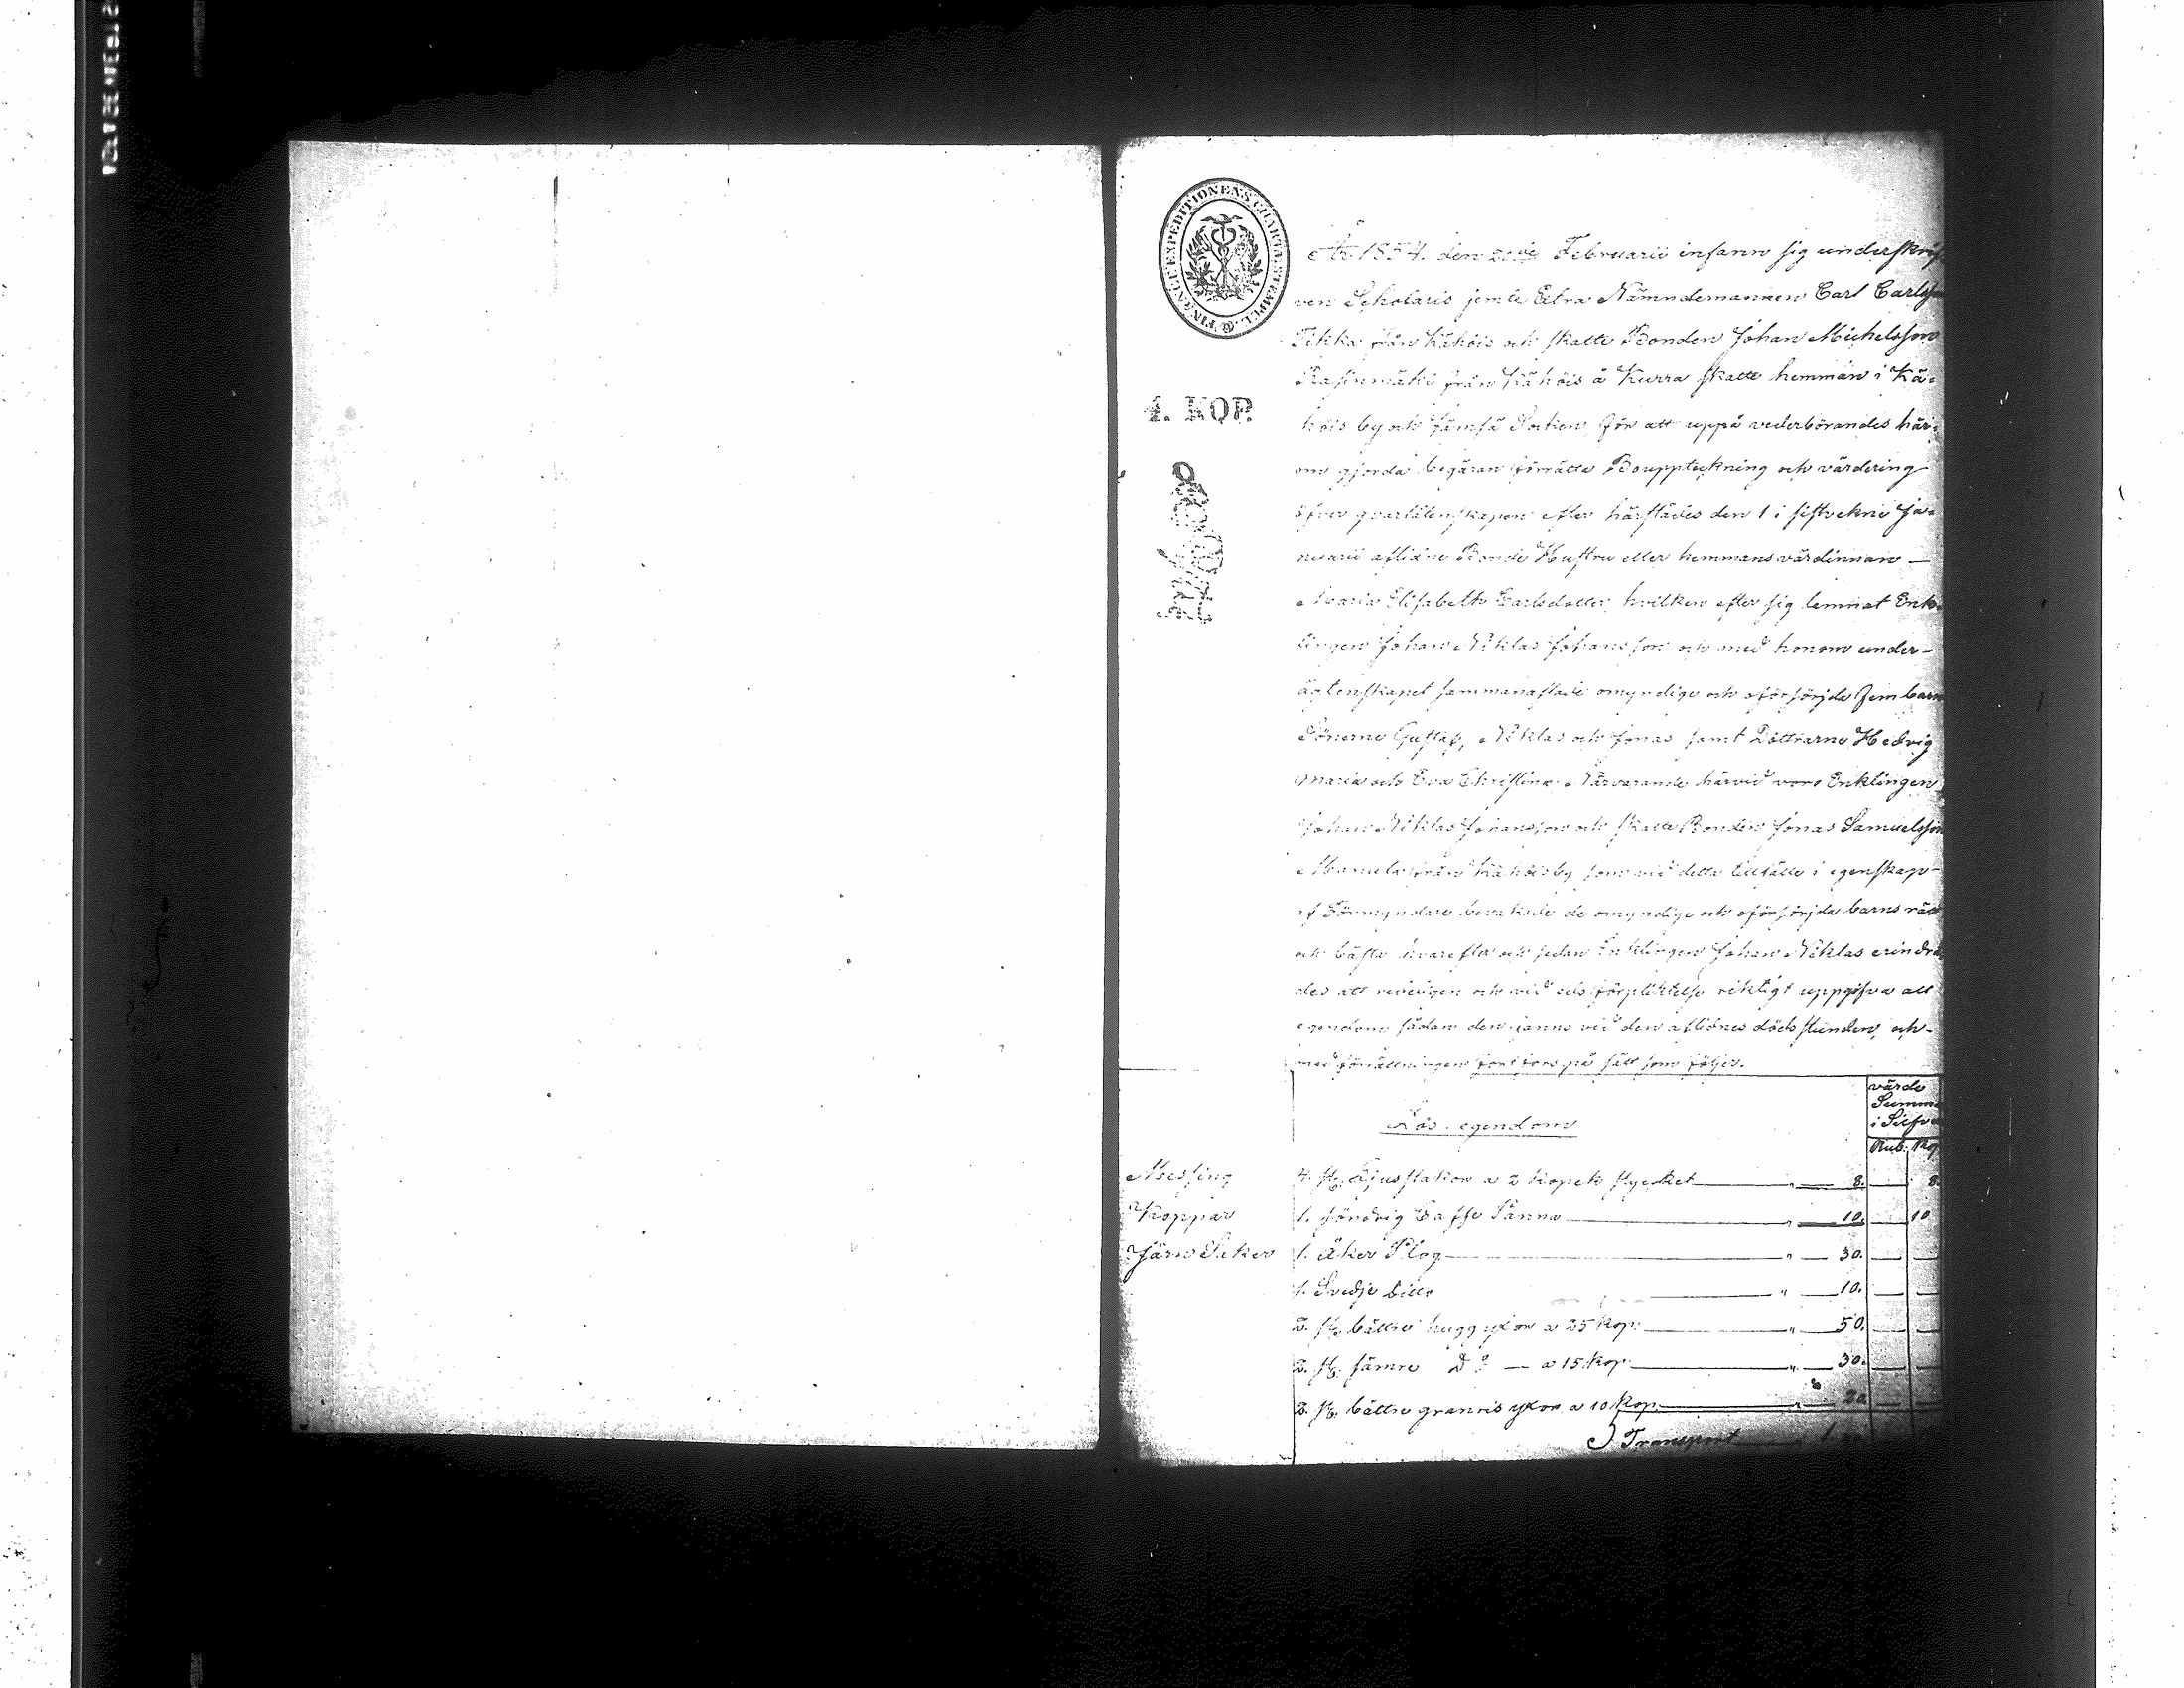 FINANCE EXPEDITIONENS CHARTÆ STEMPEL
4. KOP.
År 1854. den Februarii infann sig underskrif
ven Scholaris jemte Extra Nämndemannen Carl Carlsson
från Kähöis och skatte Bonden Johan Michelsson
från Kähöis å Kurra skatte hemman i Kä-
höis by och Jämsä Socken, för att uppå vederbörandes här-
om gjorda begäran förrätta Bouppteckning och värdering
öfver qvarlåtenskapen efter härstädes den 1 i sistvekne Ja-
nuarii aflidne Bonde Hustru eller hemmansvärdinnan —
Maria Elisabeth Carlsdotter, hvilken efter sig lemnat Enk-
lingen Johan Niklas Johansson och med honom under-
ägtenskapet sammanaflade omyndige och oförsörjda fem barn
Sönerne Gustaf, Niklas och Jonas samt Döttrarne Hedvig
Maria och Eva Christina. Närvarande härvid voro Enklingen
Johan Niklas Johansson och skatte Bonden Jonas Samuelsson
från Kähöis by som vid detta tillfälle i egenskap
af Förmyndare bevakade de omyndige och oförsörjda barns rätt
och bästa hvarefter och sedan Enklingen Johan Niklas erindra
des att redeligen och vid eds förpliktelse riktigt uppgifva all
egendom sådan den fanns vid den aflidnes dödsstunden, och
med förrättningen fortfors på sätt som följer.
värde
Summa
i Silfver
Lös egendom
Rub. Kop
Messing 4. st. Ljusstakar a 2 kopek stycket " 8. 8.
Koppar 1. söndrig Caffe Panna 10. 10
Järn Saker 1. åker Plog " 30.
1. Svedje bille " 10.
2. st. bättre huggyxor a 25 kop: " 50.
2. st. sämre Do — a 15 kop " 30.
2. st. bättre granrisyxor a 10 kop " 20
Transport 1